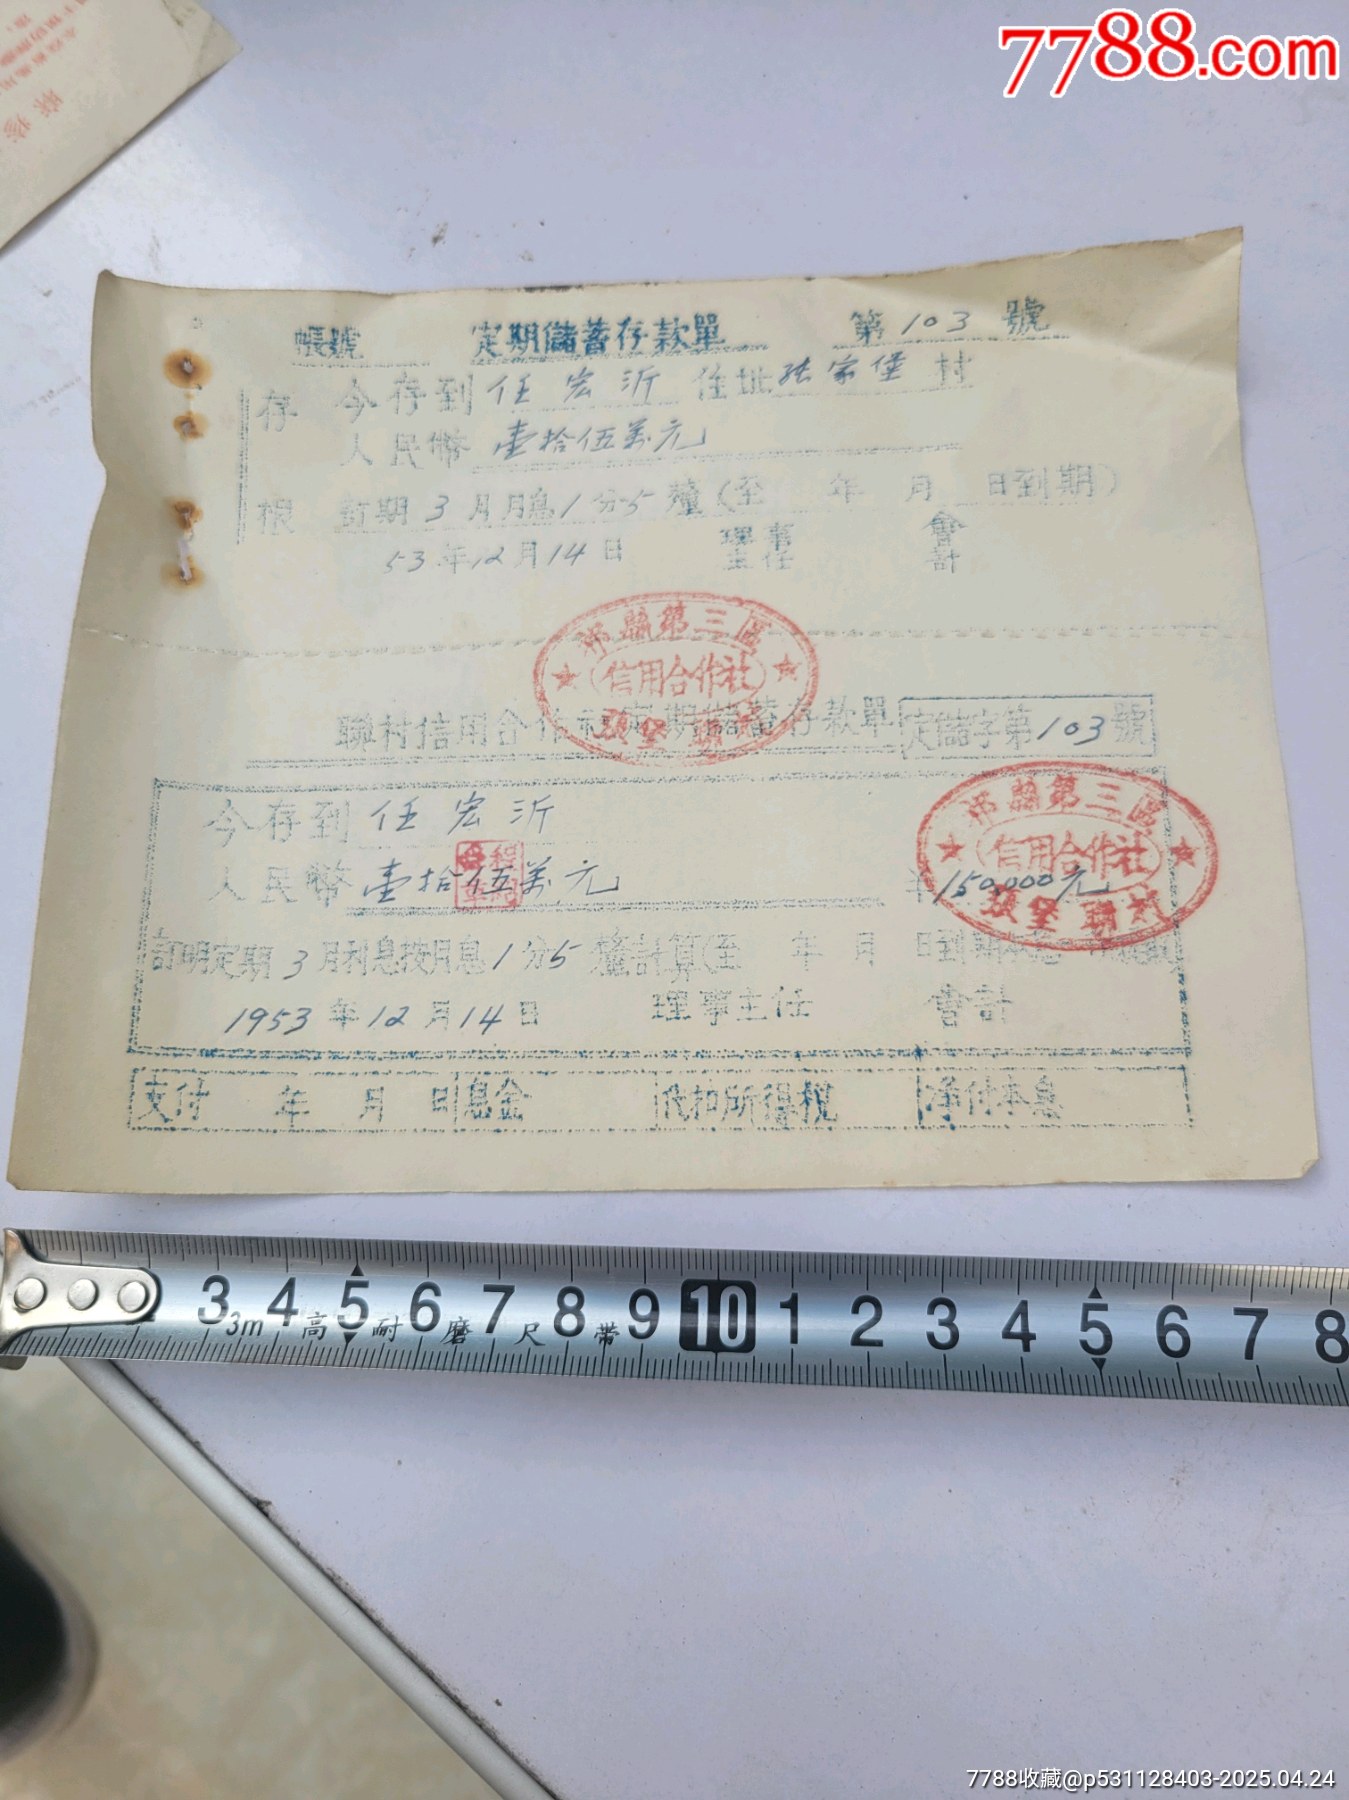 7788.com
帳號 定期儲蓄存款單 第103號
存根
今存到任宏沂 住址张家堡村
人民幣壹拾伍萬元
訂期3月月息1分5釐(至 年 月 日到期)
53年12月14日 理事主任 會計
祁縣第三區
信用合作社
聯村信用合作社定期儲蓄存款單 定儲字第103號
今存到任宏沂
祁縣第三區
信用合作社
人民幣壹拾伍萬元 150,000元
訂明定期3月利息按月息1分5釐計算(至 年 月 日到期
1953年12月14日 理事主任 會計
支付 年 月 日 息金 代扣所得税 净付本息
3 4 5 6 7 8 9 10 1 2 3 4 5 6 7 8
3m 高耐磨尺带
7788收藏@p531128403-2025.04.24